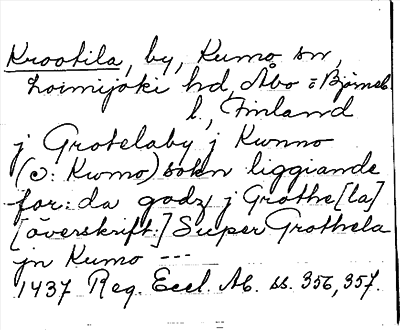 Krootila, by, Kumo sn,
Loimijoki hd, Åbo o Bjørneb.
l., Finland
j Grotelaby j Kwmo
(ɔ: Kwmo) sokn liggiande
for:da godz j Grothe[la]
[överskrift:] Super Grothela
jn Kumo ---
1437 Reg. Eccl. Ab. ss. 356, 357.